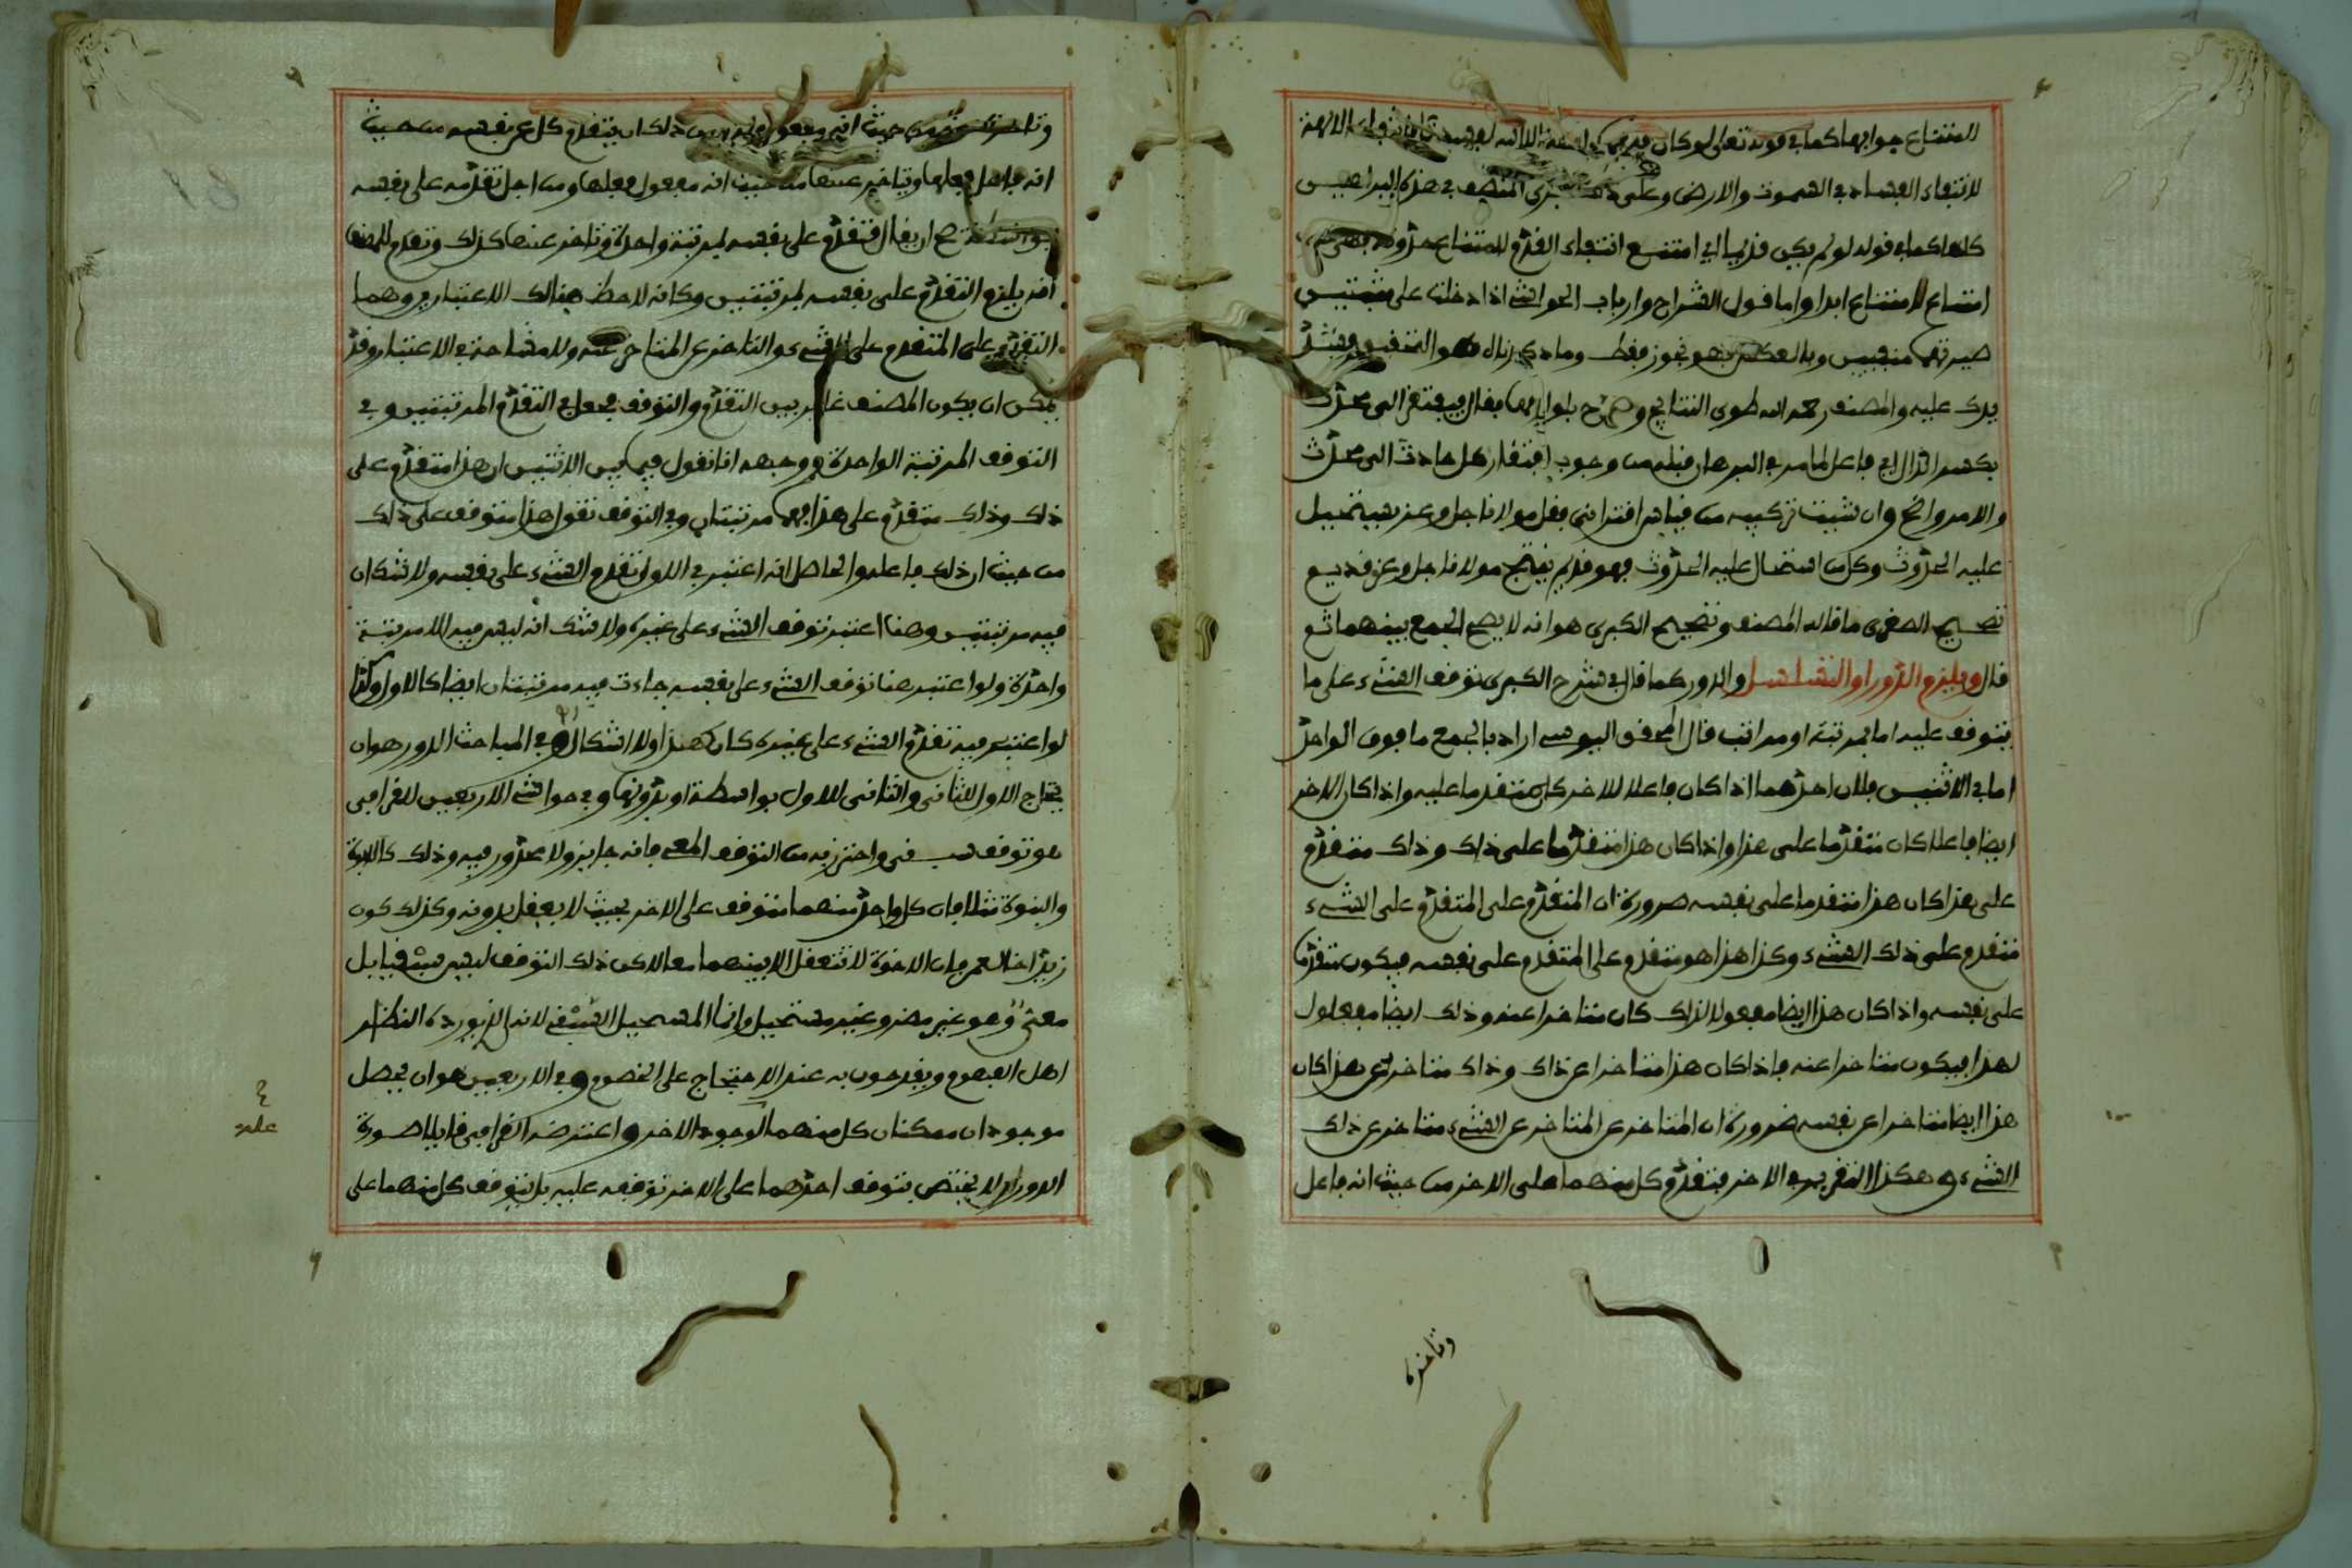 للامتناع جوابها كما في قوله تعالى لو كان فيهما الهة الا الله لفسدتا فانتفاء الالهة
لانتفاء الفساد في السموت والارض وعلى ذلك جرى المصنف في هذه البراهين
كلها كما في قوله لو لم يكن قديما اي امتنع انتفاء القدم لامتناع حدوثه
امتناع لامتناع ابدا واما قول الشراح وارباب الحواشي اذا دخلت على مثبتين
صيرتهما منفيين وبالعكس فهو تجوز فقط وما ذكرناه هو التحقيق
يدك عليه والمصنف رحمه الله طوى النتايج وصرح بلوازمها فقال فيفتقر الى محدث
بكسر الدال اي فاعل لما مر في البرهان قبله من وجوب افتقار كل حادث الى محدث
والامر واضح وان شيت تركيبه من قياس اقتراني فقل مولانا جل وعز يستحيل
عليه الحدوث وكل من استحال عليه الحدوث فهو قديم ينتج مولانا جل وعز قديم
تصحيح الصغرى ما قاله المصنف وتصحيح الكبرى هو انه لا يصح الجمع بينهما ثم
قال ويلزم الدور او التسلسل والدور كما قال في شرح الكبرى توقف الشيء على ما
يتوقف عليه اما بمرتبة او مراتب قال المحقق اليوسي اراد بالجمع ما فوق الواحد
اما في الاثنين فلان احدهما اذا كان فاعلا للاخر كان متقدما عليه واذا كان الاخر
ايضا فاعلا كان متقدما على هذا واذا كان هذا متقدما على ذاك وذاك متقدم
على هذا كان هذا متقدما على نفسه ضرورة ان المتقدم على المتقدم على الشيء
متقدم على ذلك الشيء وكذا هذا هو متقدم على المتقدم على نفسه فيكون متقدما
على نفسه واذا كان هذا ايضا مفعولا لذلك كان متاخرا عنه وذلك ايضا مفعول
لهذا فيكون متاخرا عنه فاذا كان هذا متاخرا عن ذاك وذاك متاخر عن هذا كان
هذا ايضا متاخرا عن نفسه ضرورة ان المتاخر عن المتاخر عن الشيء متاخر عن ذلك
الشيء وهكذا التقرير في الاخر فتقدم كل منهما على الاخر من حيث انه فاعل
وتاخره
وتاخره من حيث انه مفعول ذلك ان يتقدم كل عن نفسه من حيث
انه فاعل فعلها ويتاخر عنها من حيث انه مفعول فعلها ومن اجل تقدمه على نفسه
بواسطة صح ان يقال تقدم على نفسه بمرتبة واحدة وتاخر عنها كذلك وتقدم للمصنف
انه يلزم التقدم على نفسه بمرتبتين وكانه لاحظ هنالك الاعتبارين وهما
التقدم على المتقدم على الشيء والتاخر عن المتاخر عنه ولا مشاحة في الاعتبار وقد
يمكن ان يكون المصنف غاير بين التقدم والتوقف فجعل في التقدم المرتبتين وفي
التوقف المرتبة الواحدة ووجهه انا نقول فيما بين الاثنين ان هذا متقدم على
ذلك وذلك متقدم على هذا فهما مرتبتان وفي التوقف نقول هذا متوقف على ذلك
من حيث ان ذلك فاعله والحاصل انه اعتبر في الاول تقدم الشيء على نفسه ولا شك ان
فيه مرتبتين وهنا اعتبر توقف الشيء على غيره ولا شك انه ليس فيه الا مرتبة
واحدة ولو اعتبر هنا توقف الشيء على نفسه جاءت فيه مرتبتان ايضا كالاول وكذا
لو اعتبر فيه تقدم الشيء على غيره كان كهذا ولا اشكال وفي المباحث الدور هو ان
يحتاج الاول للثاني والثاني للاول بواسطة او بدونها وفي حواشي الاربعين للقرافي
هو توقف سبقي واحترز به من التوقف المعي فانه جايز ولا محذور فيه وذلك كالابوة
والبنوة مثلا فان كل واحد منهما متوقف على الاخر بحيث لا يعقل بدونه وكذلك كون
زيد اخا لعمر فان الاخوة لا تتعقل الا بينهما معا لاكن ذلك التوقف ليس سبقيا بل
معي وهو غير مضر وغير مستحيل وانما المستحيل السبقي لانه الذي يورده النظار
اهل الفهوم ويقدحون به عند الاحتجاج على الخصوم وفي الاربعين هو ان يحصل
موجودان ممكنان كل منهما الوجود الاخر واعترضه القرافي قايلا صورة
الدور لا تختص بتوقف احدهما على الاخر توقفه عليه بل يتوقف كل منهما على
علة